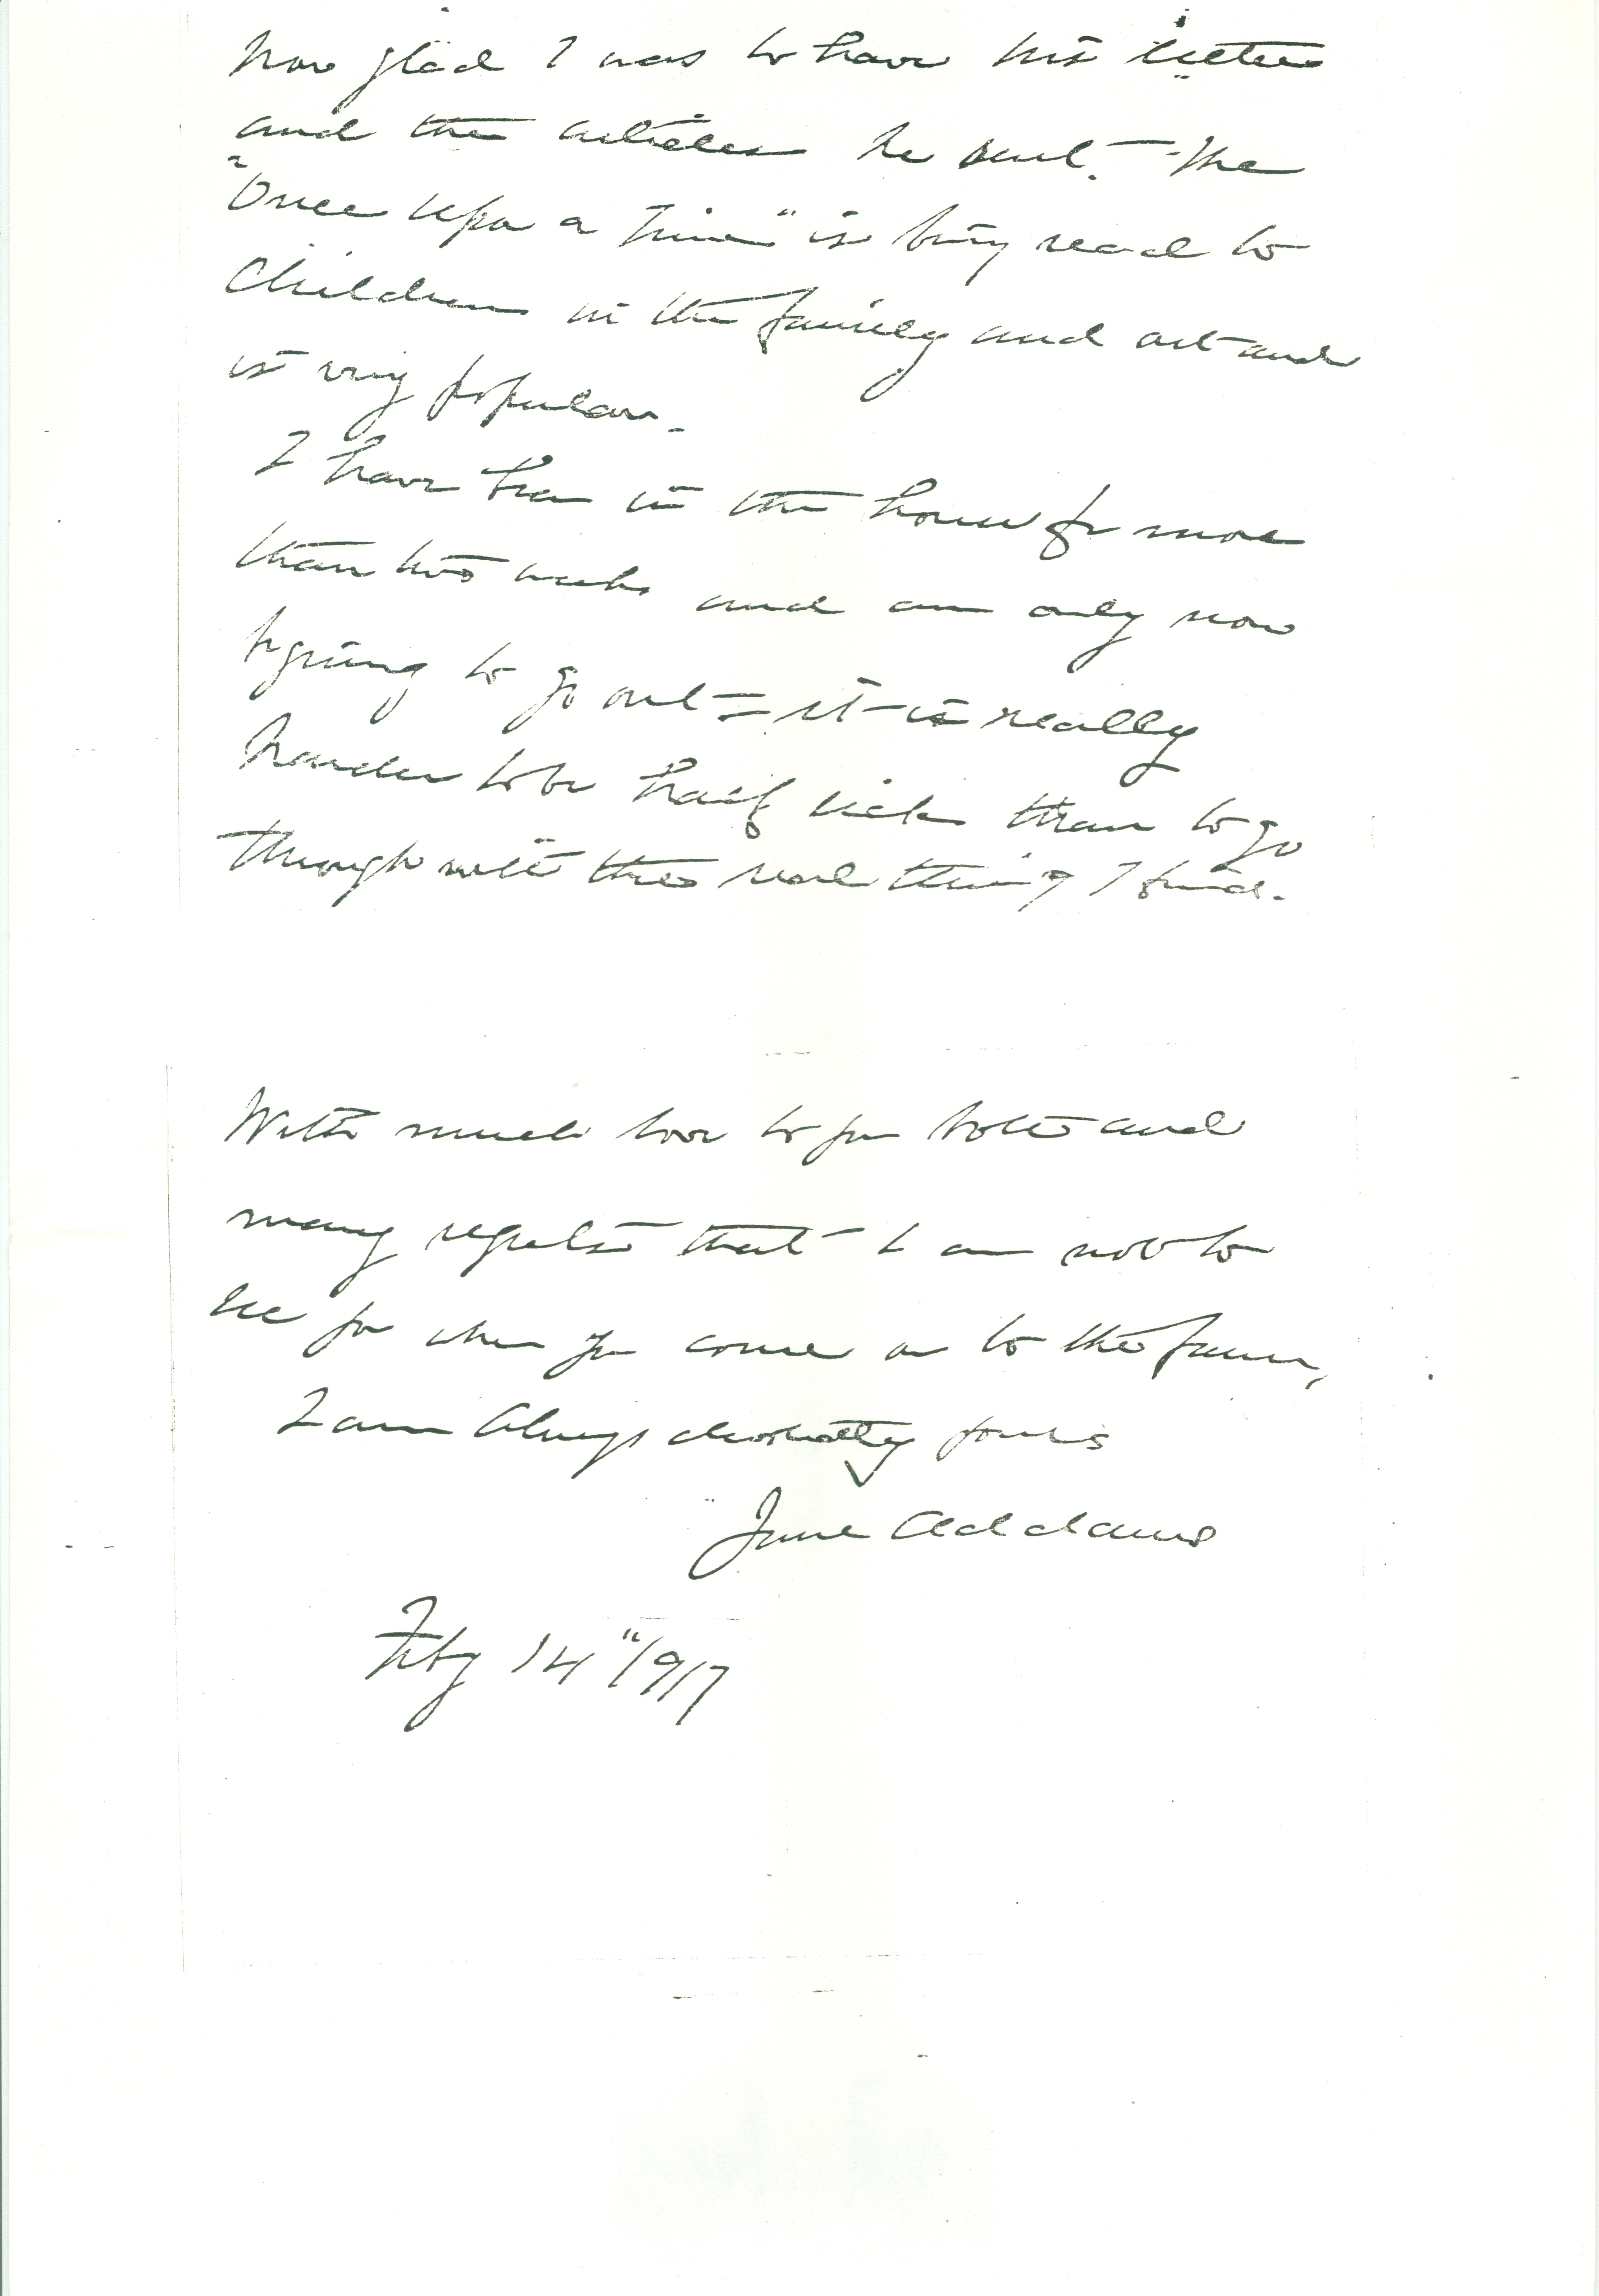 how glad I was to have his letter
and the articles he sent. The
"Once upon a time" is being read to
children in the family and out and
is very popular.
I have been in the house for more
than two weeks and am only now
begining to go out = it is really
harder to be half sick than to go
through with the real thing I find.
With much love to you both and
many regrets that I am not to
see you when you come on to the farm,
I am always devotedly yours
Jane Addams
Feby 14" 1917